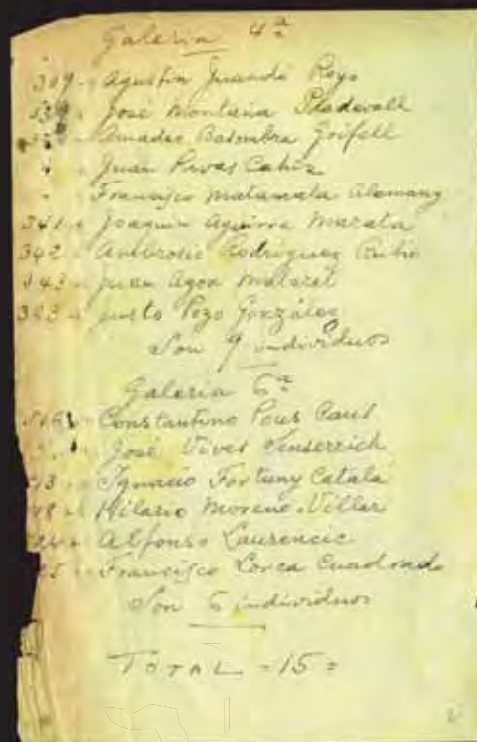 Galeria 4ª
309 - Agustin Juandó Royo
José Montaña Pladevall
Amadeo Basombra Goifell
" Juan Rivas Cahiz
" Francisco Matamata Alemany
341 - Joaquin Aguirre Marata
342 - Ambrosio Rodriguez Rubio
343 - Juan Agon Mataret
343 - Justo Pozo González
Son 9 individuos
Galeria 6ª
Constantino Pous
José Vives Censerrich
Ignacio Fortuny Catalá
Hilario Moreno Villar
Alfonso Laurencic
Francisco Lorca Cuadrado
Son 6 individuos
TOTAL - 15 =